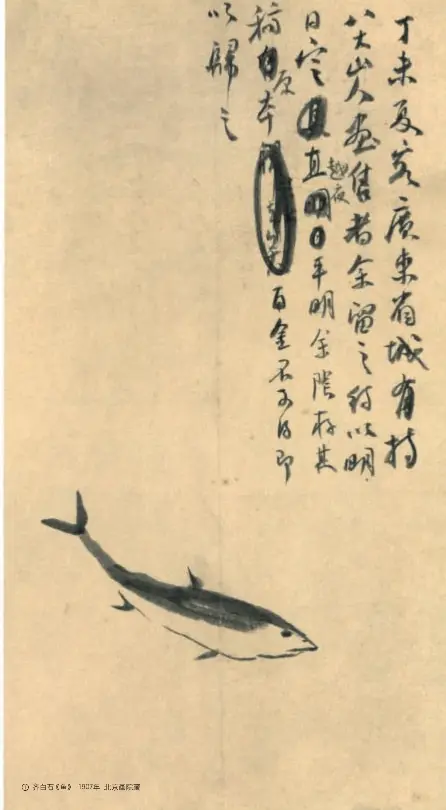 丁未夏客廣東省城有持
八大山人畫售者余留之待以明
日定直越夜平明余隂存其
稿原本百金不可得即
以歸之
① 齐白石《鱼》 1907年 北京画院藏